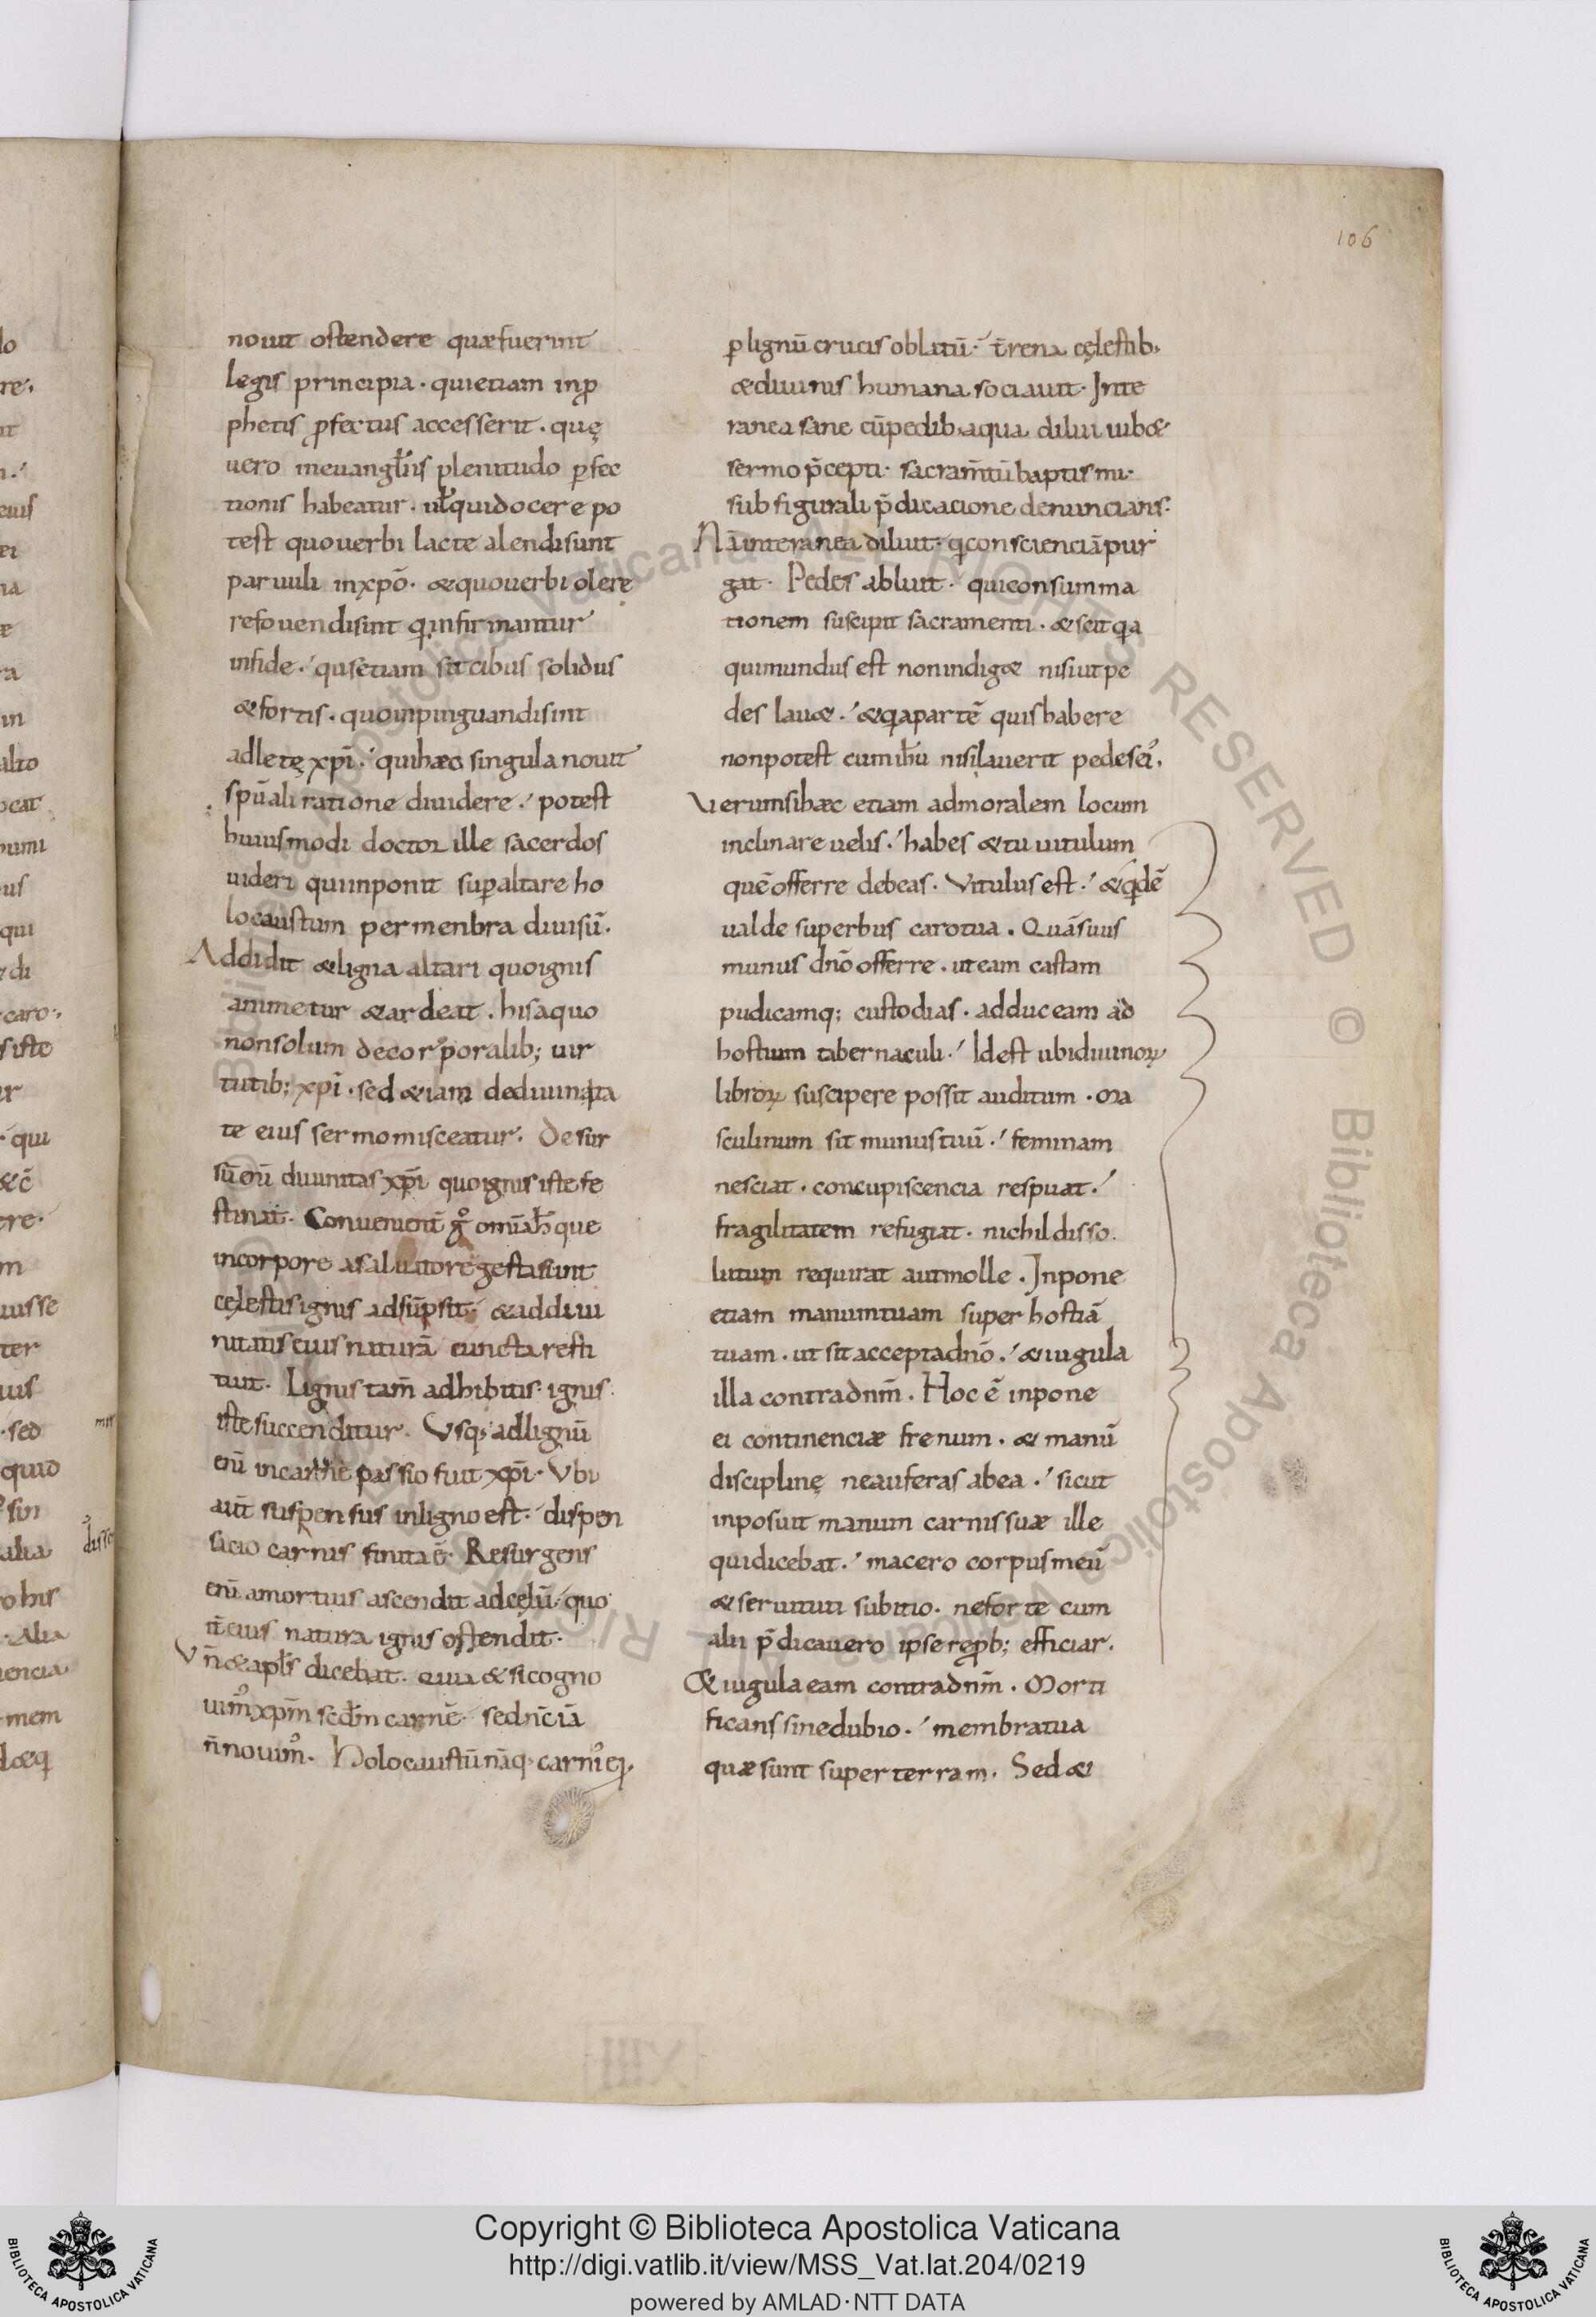 106
nouit ostendere quæ fuerint
legis principia · qui etiam in ꝓ
phetis ꝓfectus accesserit · quę
uero in euangłiis plenitudo ꝑfec
tionis habeatur · uł qui docere po
test quo uerbi lacte alendi sunt
paruuli in xpō · & quo uerbi olere
refouendi sint q infirmantur
in fide · quis etiam sit cibus solidus
& fortis · quo inpinguandi sint
adletę xpī · qui hæc singula nouit
spūali ratione diuidere · potest
huiusmodi doctor ille sacerdos
uideri qui inponit suꝑ altare ho
locaustum per menbra diuisū ·
Addidit & ligna altari quo ignis
animetur & ardeat · his a quo
non solum de corporalib; uir
tutib; xpī · sed &iam de diuinita
te eius sermo misceatur · Desur
sū enī diuinitas xpī quo ignis iste fe
stinat · Conuenient g° omīa hęc que
in corpore a saluatore gesta sunt
cęlestis ignis adsūpsit · & ad diui
nitatis eius naturā cuncta resti
tuit · Lignis tam̄ adhibitis · ignis
iste succenditur · Vsq; ad lignū
enī in carne passio fuit xpī · Vbi
aut̄ suspensus in ligno est · dispen
sacio carnis finita ē · Resurgens
enī a mortuis ascendit ad cęlū · quo
it̄ eius natura ignis ostendit ·
Vn̄ & apłs dicebat · quia & si cogno
uim᾽ xpm̄ scdm̄ carnē · sed nc̄ iā
n̄ nouim᾽ · Holocaustū nāq; carni᾽ ei᾽
ꝑ lignū crucis oblatū · t̄rena cęlestib;
& diuinis humana sociauit · Inte
ranea sane cū pedib; aqua dilui iub&
sermo p̄cepti · sacram̄tū baptismi ·
sub figurali p̄dicacione denuncians ·
Nā interanea diluit · q conscienciā pur
gat · Pedes abluit · qui consumma
tionem suscipit sacramenti · & scit qa
qui mundus est non indig& nisi ut pe
des lau& · & qa partē quis habere
non potest cum ihu nisi lauerit pedes ei᾽ ·
Verum si hæc etiam ad moralem locum
inclinare uelis · habes & tu uitulum
quē offerre debeas · Vitulus est · & qdē
ualde superbus caro tua · Quā si uis
munus dnō offerre · ut eam castam
pudicamq; custodias · adduc eam ad
hostium tabernaculi · Id est ubi diuinoꝝ
libroꝝ suscipere possit auditum · Ma
sculinum sit munus tuū · feminam
nesciat · concupiscencia respuat ·
fragilitatem refugiat · nichil disso
lutum requirat aut molle · Inpone
etiam manum tuam super hostiā
tuam · ut sit accepta dnō · & iugula
illa contra dnm̄ · Hoc ē inpone
ei continenciæ frenum · & manū
disciplinę ne auferas ab ea · sicut
inposuit manum carni suæ ille
qui dicebat · macero corpus meū
& seruituti subitio · ne forte cum
alii p̄dicauero ipse reꝓb; efficiar ·
& iugula eam contra dnm̄ · Morti
ficans sine dubio · membra tua
quæ sunt super terram · Sed &
Copyright © Biblioteca Apostolica Vaticana
http://digi.vatlib.it/view/MSS_Vat.lat.204/0219
powered by AMLAD·NTT DATA
BIBLIOTECA APOSTOLICA VATICANA
BIBLIOTECA APOSTOLICA VATICANA